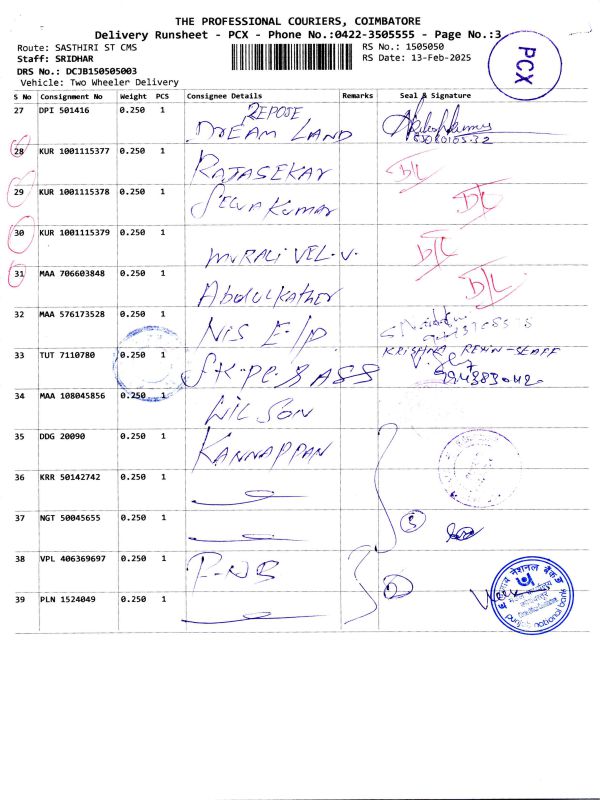 THE PROFESSIONAL COURIERS, COIMBATORE
Delivery Runsheet - PCX - Phone No.:0422-3505555 - Page No.:3
Route: SASTHIRI ST CMS
RS No.: 1505050
Staff: SRIDHAR
RS Date: 13-Feb-2025
DRS No.: DCJB150505003
Vehicle: Two Wheeler Delivery
PCX
S No Consignment No Weight PCS Consignee Details Remarks Seal & Signature
27 DPI 501416 0.250 1 REPOSE
DREAM LAND
28 KUR 1001115377 0.250 1 RAJASEKAR D/L
29 KUR 1001115378 0.250 1 Selva Kumar D/L
30 KUR 1001115379 0.250 1 MURALI VEL.V. D/L
31 MAA 706603848 0.250 1 Abdulkather D/L
32 MAA 576173528 0.250 1 NIS E/P
33 TUT 7110780 0.250 1 KRISHNA
34 MAA 108045856 0.250 1 WILSON
35 DDG 20090 0.250 1 KANNAPPAN
36 KRR 50142742 0.250 1
37 NGT 50045655 0.250 1 3
38 VPL 406369697 0.250 1 P-NB
39 PLN 1524049 0.250 1
पंजाब नैशनल बैंक
punjab national bank